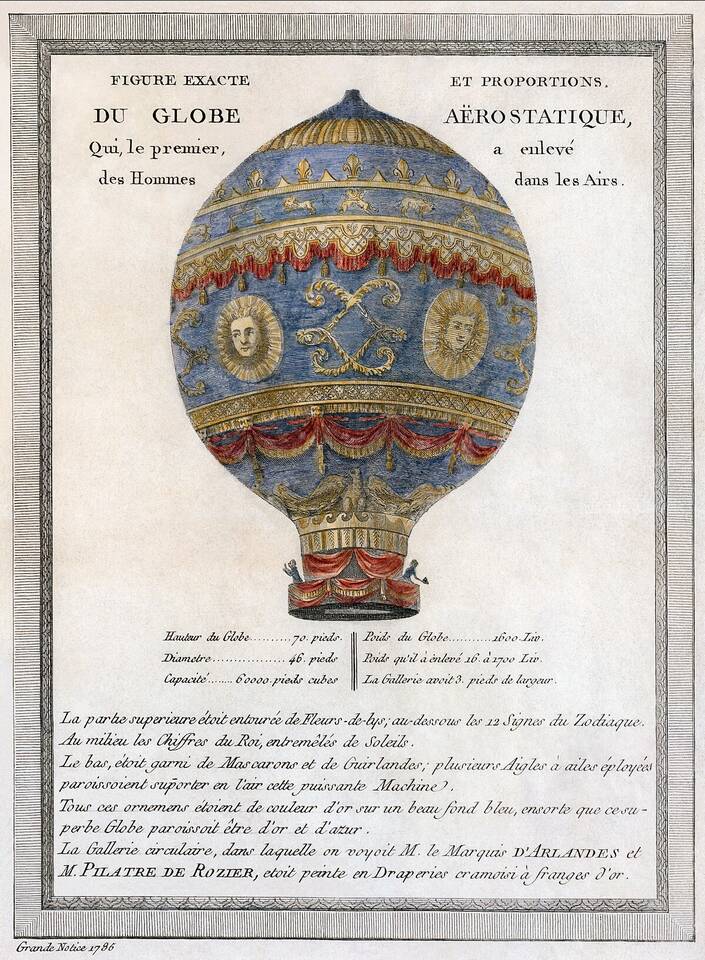 FIGURE EXACTE ET PROPORTIONS.
DU GLOBE AËROSTATIQUE,
Qui, le premier, a enlevé
des Hommes dans les Airs.
Hauteur du Globe..........70. pieds.
Diametre................46. pieds
Capacité........60000. pieds cubes
Poids du Globe..........1600. Liv.
Poids qu'il à enlevé 16. à 1700 Liv.
La Gallerie avoit 3. pieds de largeur.
La partie superieure étoit entourée de Fleurs-de-lys; au-dessous les 12 Signes du Zodiaque.
Au milieu les Chiffres du Roi, entremêlés de Soleils.
Le bas, étoit garni de Mascarons et de Guirlandes; plusieurs Aigles à ailes éployées
paroissoient suporter en l'air cette puissante Machine.
Tous ces ornemens étoient de couleur d'or sur un beau fond bleu, ensorte que ce su-
perbe Globe paroissoit être d'or et d'azur.
La Gallerie circulaire, dans laquelle on voyoit M. le Marquis D'ARLANDES et
M. PILATRE DE ROZIER, etoit peinte en Draperies cramoisi à franges d'or.
Grande Notice 1786